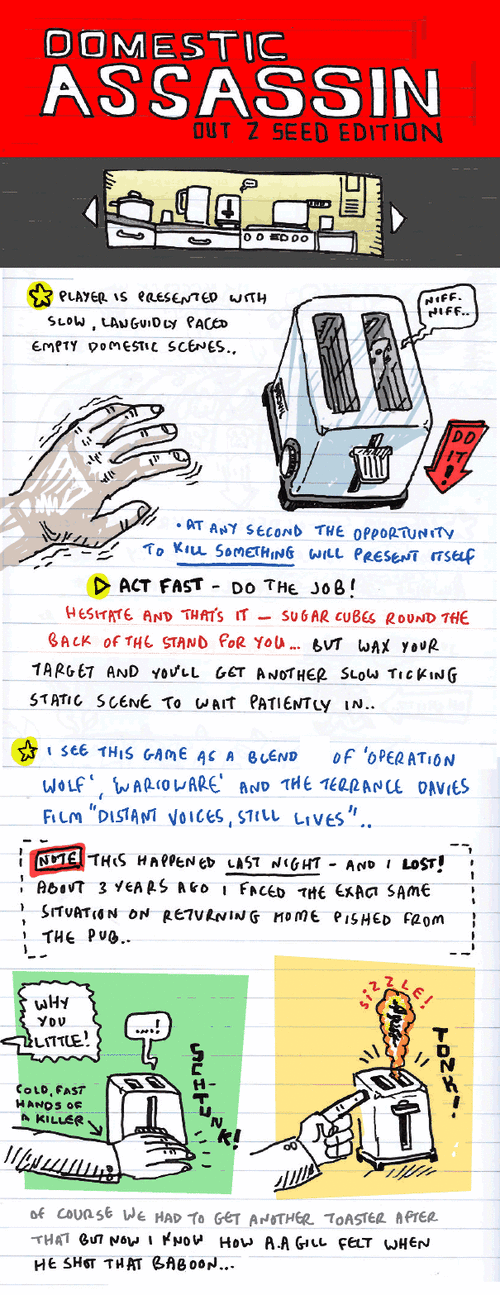 DOMESTIC
ASSASSIN
OUT 2 SEED EDITION
PLAYER IS PRESENTED WITH
SLOW, LANGUIDLY PACED
EMPTY DOMESTIC SCENES..
NIFF.
NIFF..
DO
IT
!
• AT ANY SECOND THE OPPORTUNITY
TO KILL SOMETHING WILL PRESENT ITSELF
ACT FAST - DO THE JOB!
HESITATE AND THAT'S IT — SUGAR CUBES ROUND THE
BACK OF THE STAND FOR YOU... BUT WAX YOUR
TARGET AND YOU'LL GET ANOTHER SLOW TICKING
STATIC SCENE TO WAIT PATIENTLY IN..
I SEE THIS GAME AS A BLEND OF 'OPERATION
WOLF', 'WARIOWARE' AND THE TERRANCE DAVIES
FILM "DISTANT VOICES, STILL LIVES"..
NOTE THIS HAPPENED LAST NIGHT - AND I LOST!
ABOUT 3 YEARS AGO I FACED THE EXACT SAME
SITUATION ON RETURNING HOME PISHED FROM
THE PUB..
WHY
YOU
LITTLE!
....!
COLD, FAST
HANDS OF
A KILLER
SCH-TUNK!
SIZZLE!
TONK!
OF COURSE WE HAD TO GET ANOTHER TOASTER AFTER
THAT BUT NOW I KNOW HOW A.A GILL FELT WHEN
HE SHOT THAT BABOON...